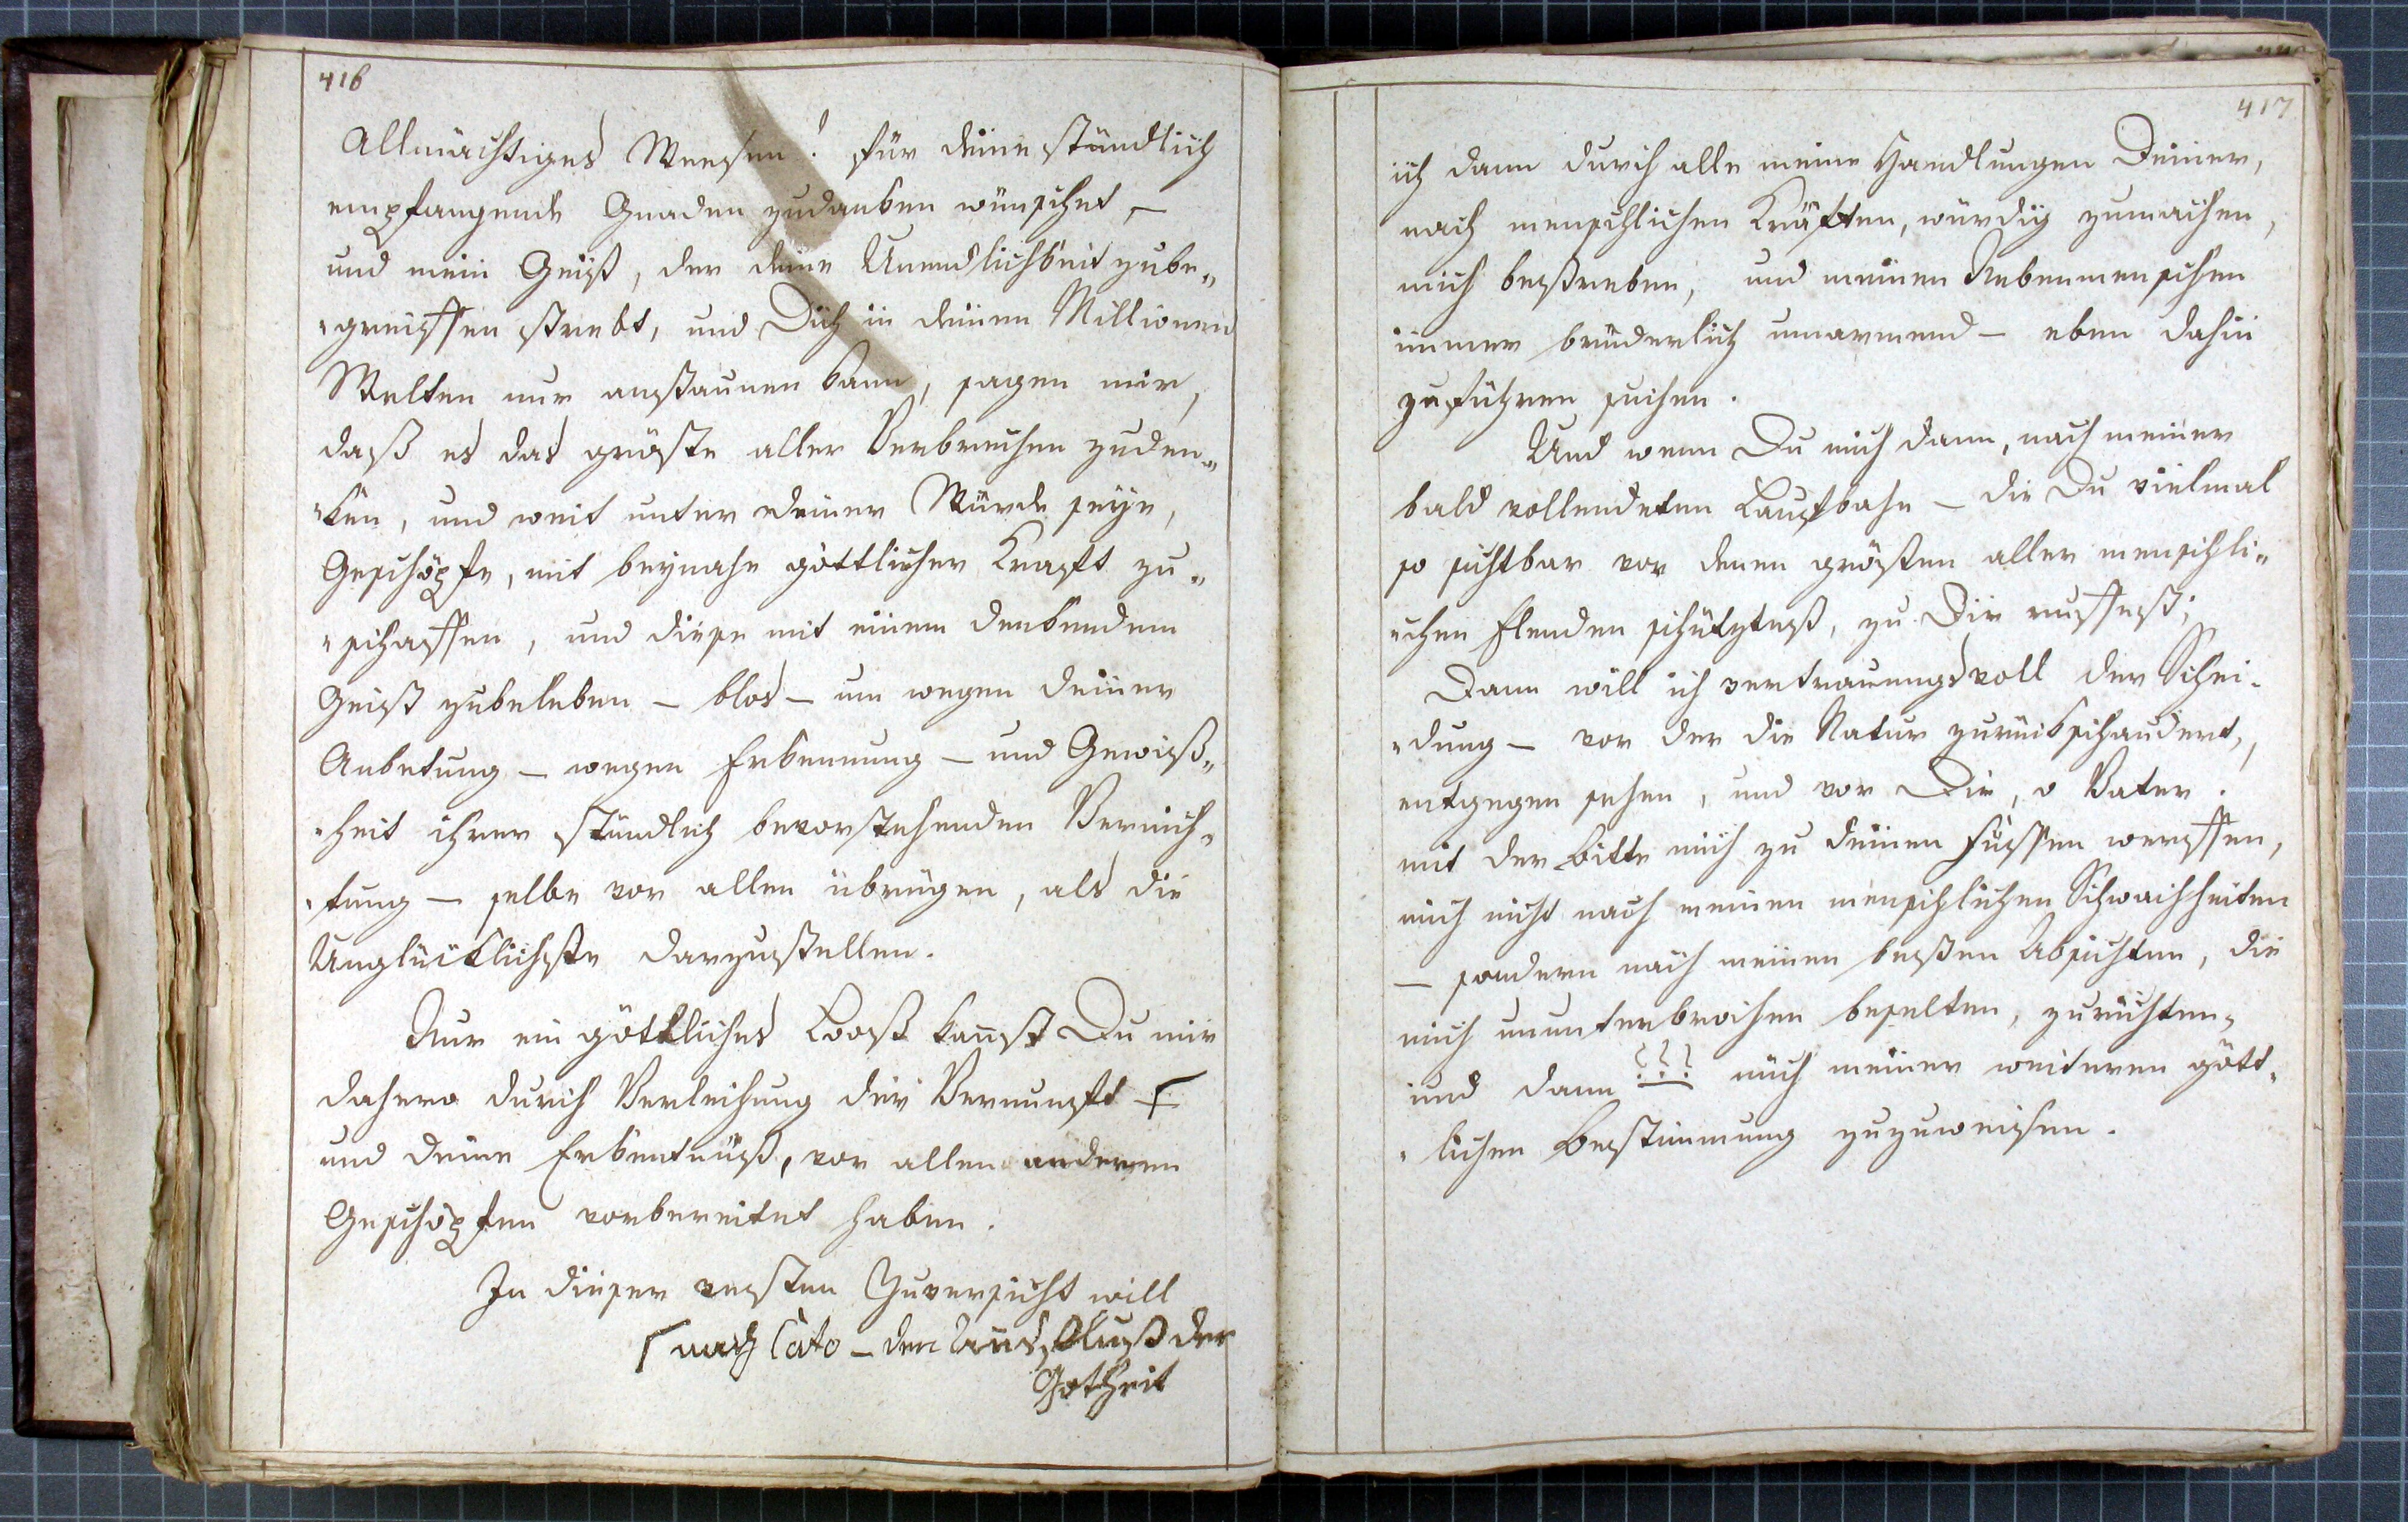 416
Allmächtiges Weesen! für deine stündlich
empfangende Gnaden zudanken wünschet –
und mein Geist, der deine Unendlichkeit zube„
„greiffen strebt, und Dich in deinen Millionen
Welten nur anstaunen kann, sagen mir,
daß es das gröste aller Verbrechen zuden„
„ken, und weit unter deiner Würde seye,
Geschöpfe, mit beynahe göttlicher Kraft zu„
„schaffen, und diese mit einem denkendem
Geist zubeleben – blos – um wegen deiner
Anbetung – wegen Erkennung – und Gewiß„
„heit ihrer stündlich bevorstehenden Vernich„
„tung – selbe vor allen übrigen, als die
Unglücklichste darzustellen.
Nur ein göttliches Looß kannst Du mir
dahero durch Verleihung der Vernunft –
und deine Erkentnüß, vor allen anderen
Geschöpfen vorbereitet haben.
In dieser vesten Zuversicht will
nach Cato – den Ausfluß der
Gotheit
417
ich dann durch alle meine Handlungen Deiner,
nach menschlichen Kräften, würdig zumachen,
mich bestreben, und meinen Nebenmenschen
immer brüderlich umarmend – eben dahin
zuführen suchen.
Und wenn Du mich dann, nach meiner
bald vollendeten Laufbahn – die Du vielmal
so sichtbar vor denen grösten aller menschli„
„chen Elenden schütztest, zu Dir ruffest;
Dann will ich vertrauungsvoll der Schei„
„dung – vor der die Natur zurückschaudert,
entgegen sehen, und vor Dir, o Vater!
mit der Bitte mich zu deinen Füssen werffen,
mich nicht nach meinen menschlichen Schwachheiten
– sondern nach meinen besten Absichten, die
mich ununterbrochen beselten, zurichten„
und dann ??? mich meiner weiteren gött„
„lichen Bestimmung zuzuweisen.